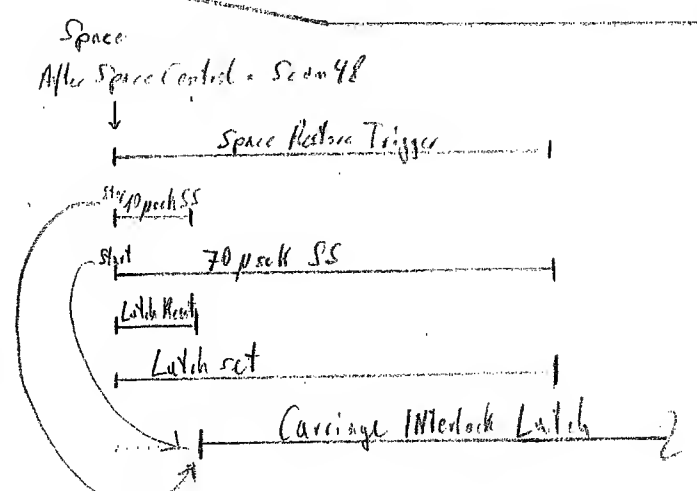 Space
After Space Control - Scan 48
Space Restore Trigger
Start 10 µsek SS
Start 70 µsek SS
Latch Reset
Latch set
Carriage INterlock Latch